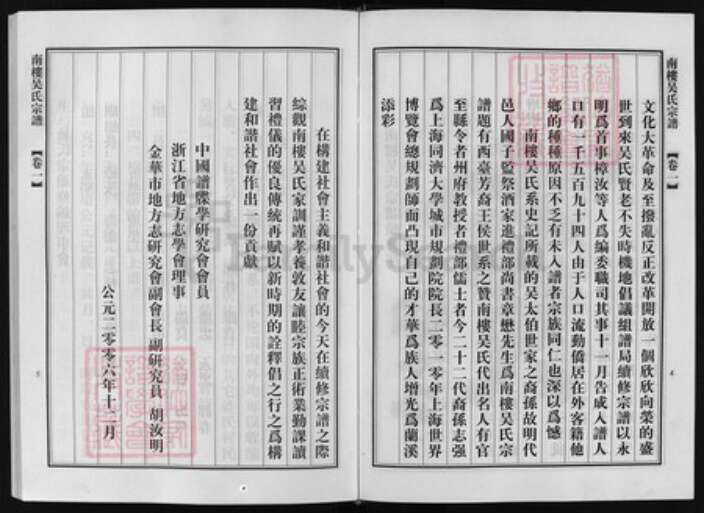 南樓吴氏宗譜
【卷一】
文化大革命及至撥亂反正改革開放一個欣欣向榮的盛
世到來吴氏賢老不失時機地倡議組譜局續修宗譜以永
明爲首事樟汝等人爲編委職司其事十一月告成入譜人
口有一千五百九十四人由于人口流動僑居在外客籍他
鄉的種種原因不乏有未入譜者宗族同仁也深以爲憾
南樓吴氏系史記所載的吴太伯世家之裔孫故明代
邑人國子監祭酒家進禮部尚書章懋先生爲南樓吴氏宗
譜題有西臺芳裔王侯世系之贊南樓吴氏代出名人有官
至縣令者州府教授者禮部儒士者今二十二代裔孫志强
爲上海同濟大學城市規劃院院長二零一零年上海世界
博覽會總規劃師而凸現自己的才華爲族人增光爲蘭溪
添彩
4
在構建社會主義和諧社會的今天在續修宗譜之際
綜觀南樓吴氏家訓謹孝養敦友讓睦宗族正術業勤課讀
習禮儀的優良傳統再賦以新時期的詮釋倡之行之爲構
建和諧社會作出一份貢獻
中國譜牒學研究會會員
浙江省地方志學會理事
金華市地方志研究會副會長 副研究員 胡汝明
公元二零零六年十二月
南樓吴氏宗譜
【卷一】
5